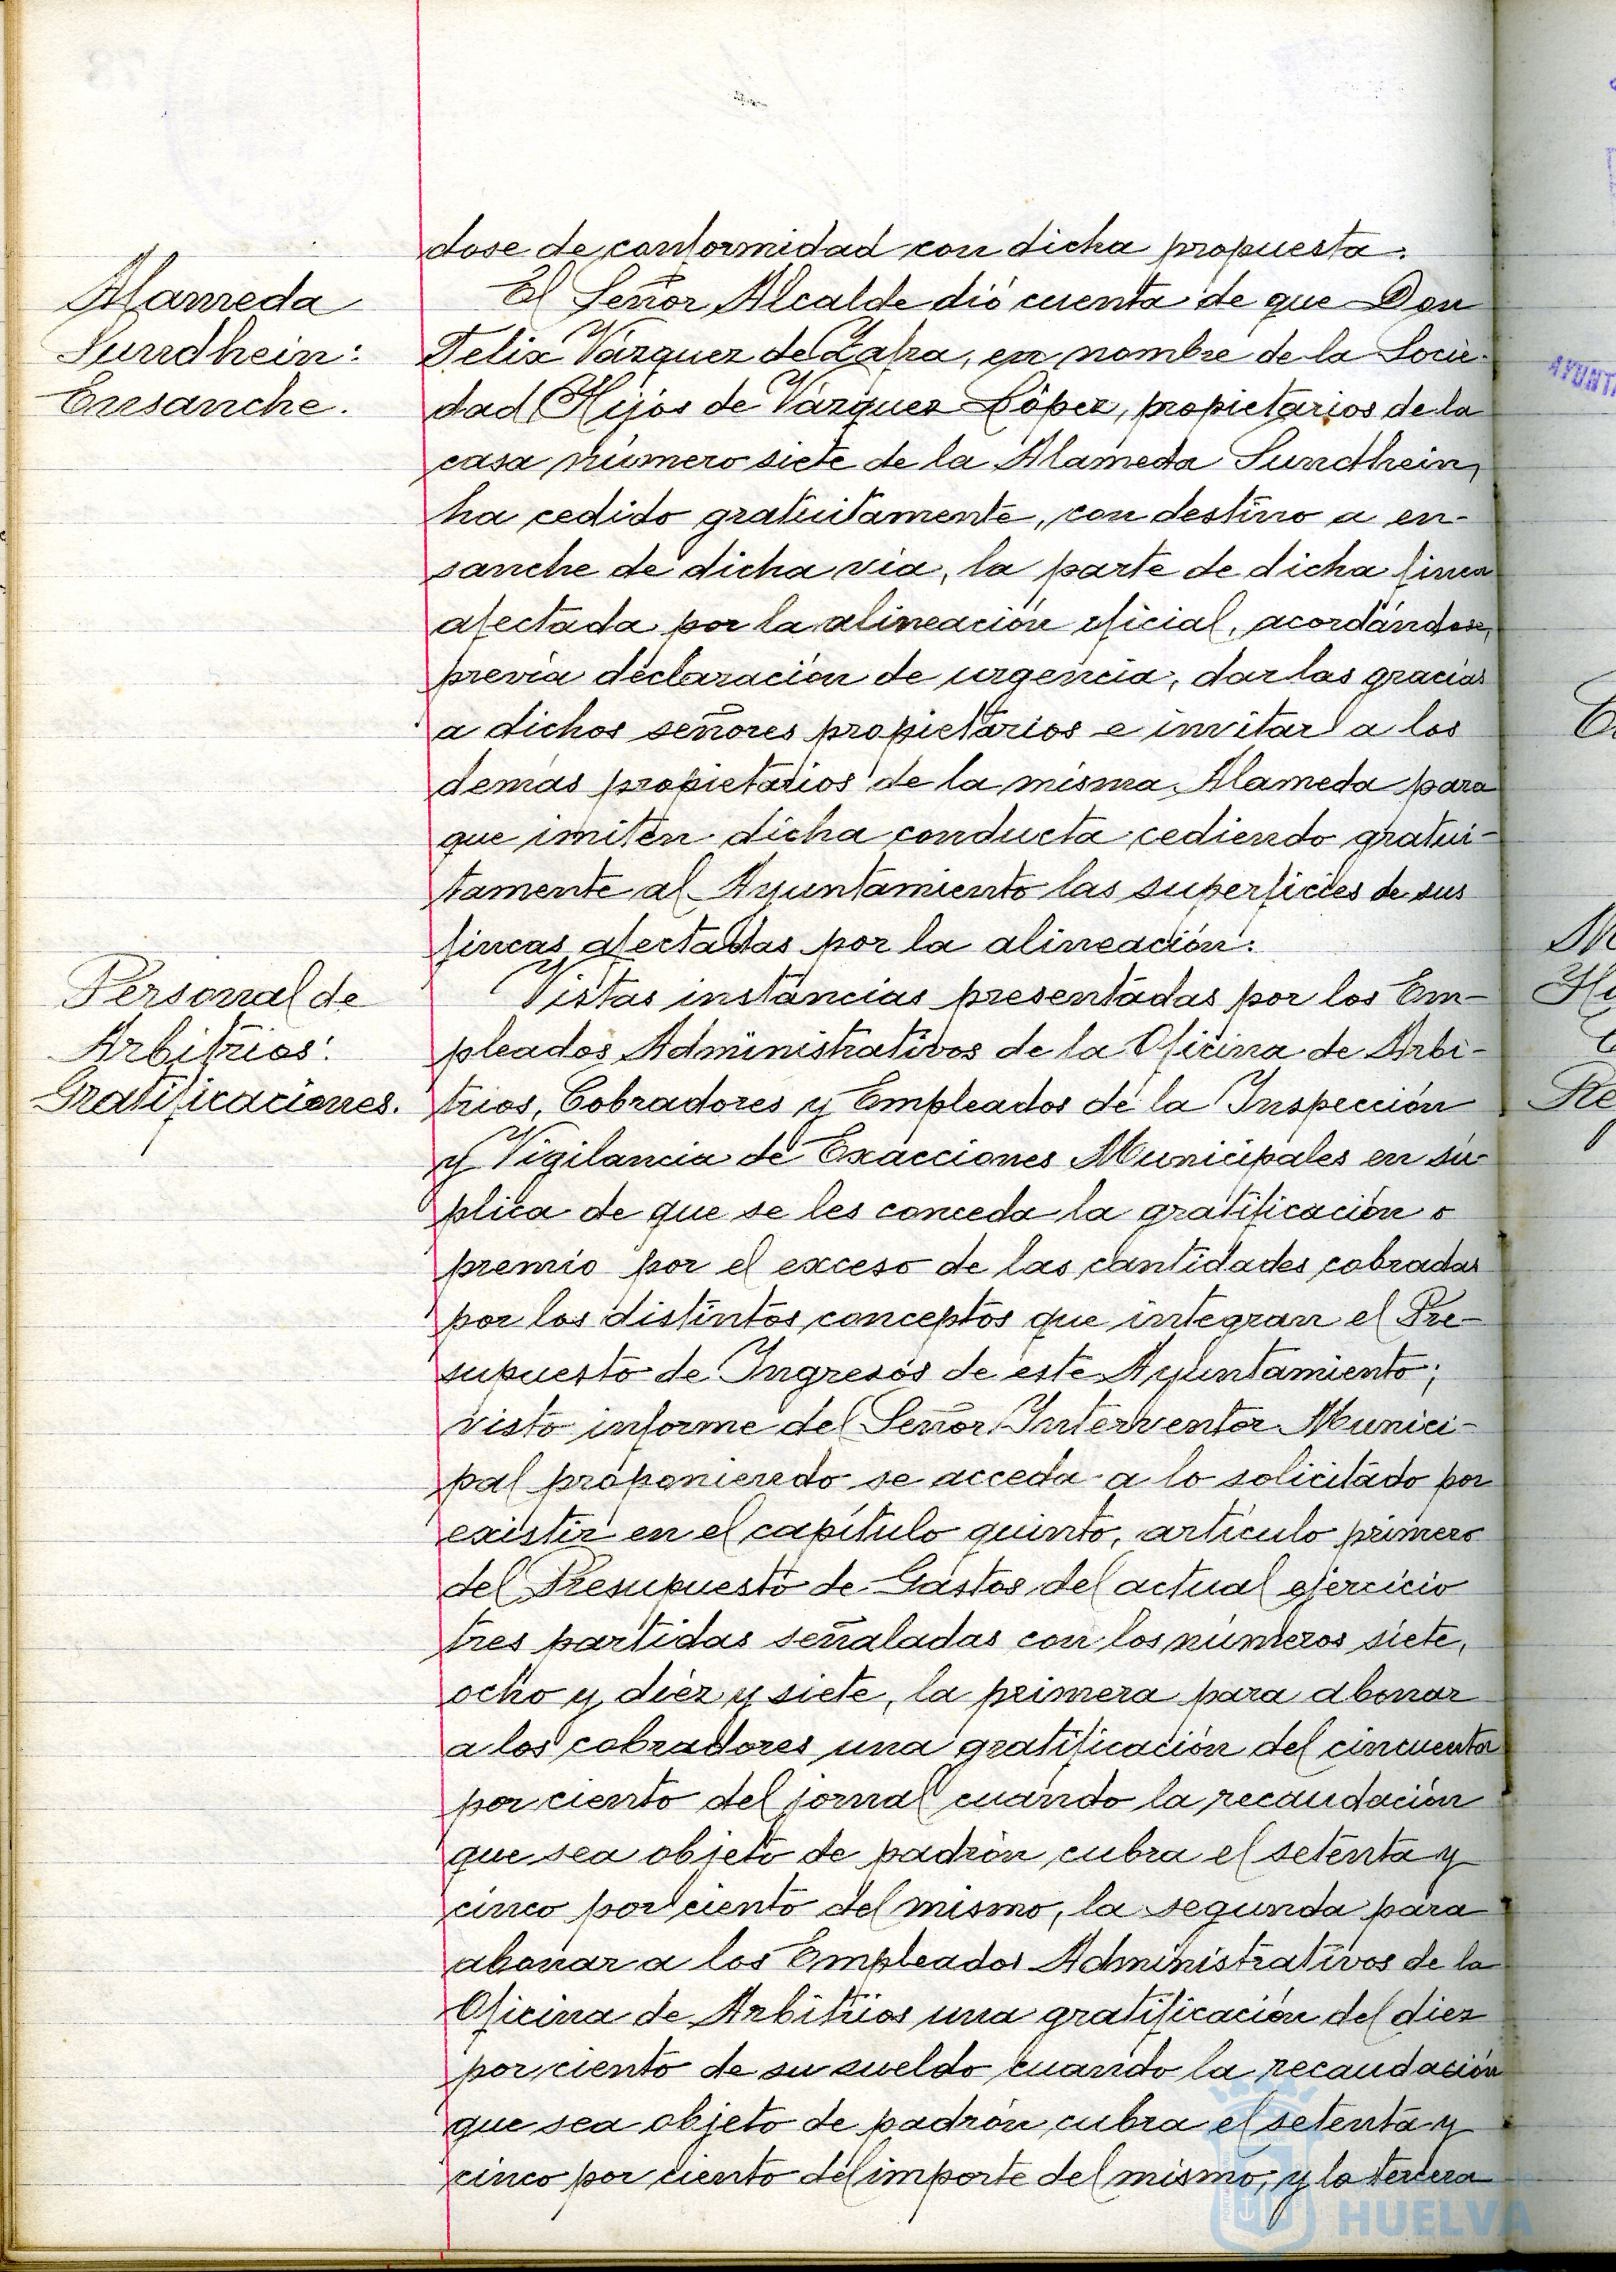 dose de conformidad con dicha propuesta.
Alameda
Sundhein:
Ensanche.
El Señor Alcalde dió cuenta de que Don
Felix Vázquez de Zafra, en nombre de la Socie-
dad Hijos de Vázquez López, propietarios de la
casa número siete de la Alameda Sundhein,
ha cedido gratuitamente, con destino a en-
sanche de dicha via, la parte de dicha finca
afectada por la alineación oficial, acordándose,
previa declaración de urgencia, dar las gracias
a dichos señores propietarios e invitar a los
demás propietarios de la misma Alameda para
que imiten dicha conducta cediendo gratui-
tamente al Ayuntamiento las superficies de sus
fincas afectadas por la alineación.
Personal de
Arbitrios:
Gratificaciones.
Vistas instancias presentadas por los Em-
pleados Administrativos de la Oficina de Arbi-
trios, Cobradores y Empleados de la Inspección
y Vigilancia de Exacciones Municipales en sú-
plica de que se les conceda la gratificación o
premio por el exceso de las cantidades cobradas
por los distintos conceptos que integran el Pre-
supuesto de Ingresos de este Ayuntamiento;
visto informe del Señor Interventor Munici-
pal proponiendo se acceda a lo solicitado por
existir en el capítulo quinto, artículo primero
del Presupuesto de Gastos del actual ejercicio
tres partidas señaladas con los números siete,
ocho y diez y siete, la primera para abonar
a los cobradores una gratificación del cincuenta
por ciento del jornal cuando la recaudación
que sea objeto de padrón cubra el setenta y
cinco por ciento del mismo, la segunda para
abonar a los Empleados Administrativos de la
Oficina de Arbitrios una gratificación del diez
por ciento de su sueldo cuando la recaudación
que sea objeto de padrón cubra el setenta y
cinco por ciento del importe del mismo, y la tercera
HUELVA